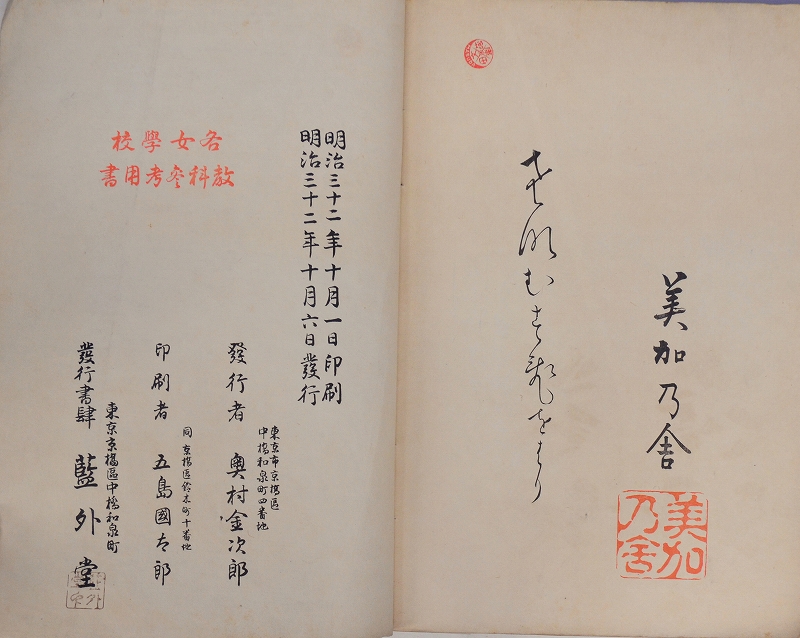 美加乃舎
美加乃舎
明治三十二年十月一日印刷
明治三十二年十月六日發行
各女學校
教科參考用書
東京市京橋區
中橋和泉町四番地
發行者 奥村金次郎
同 京橋區鈴木町十番地
印刷者 五島國太郎
東京京橋區中橋和泉町
發行書肆 藍外堂